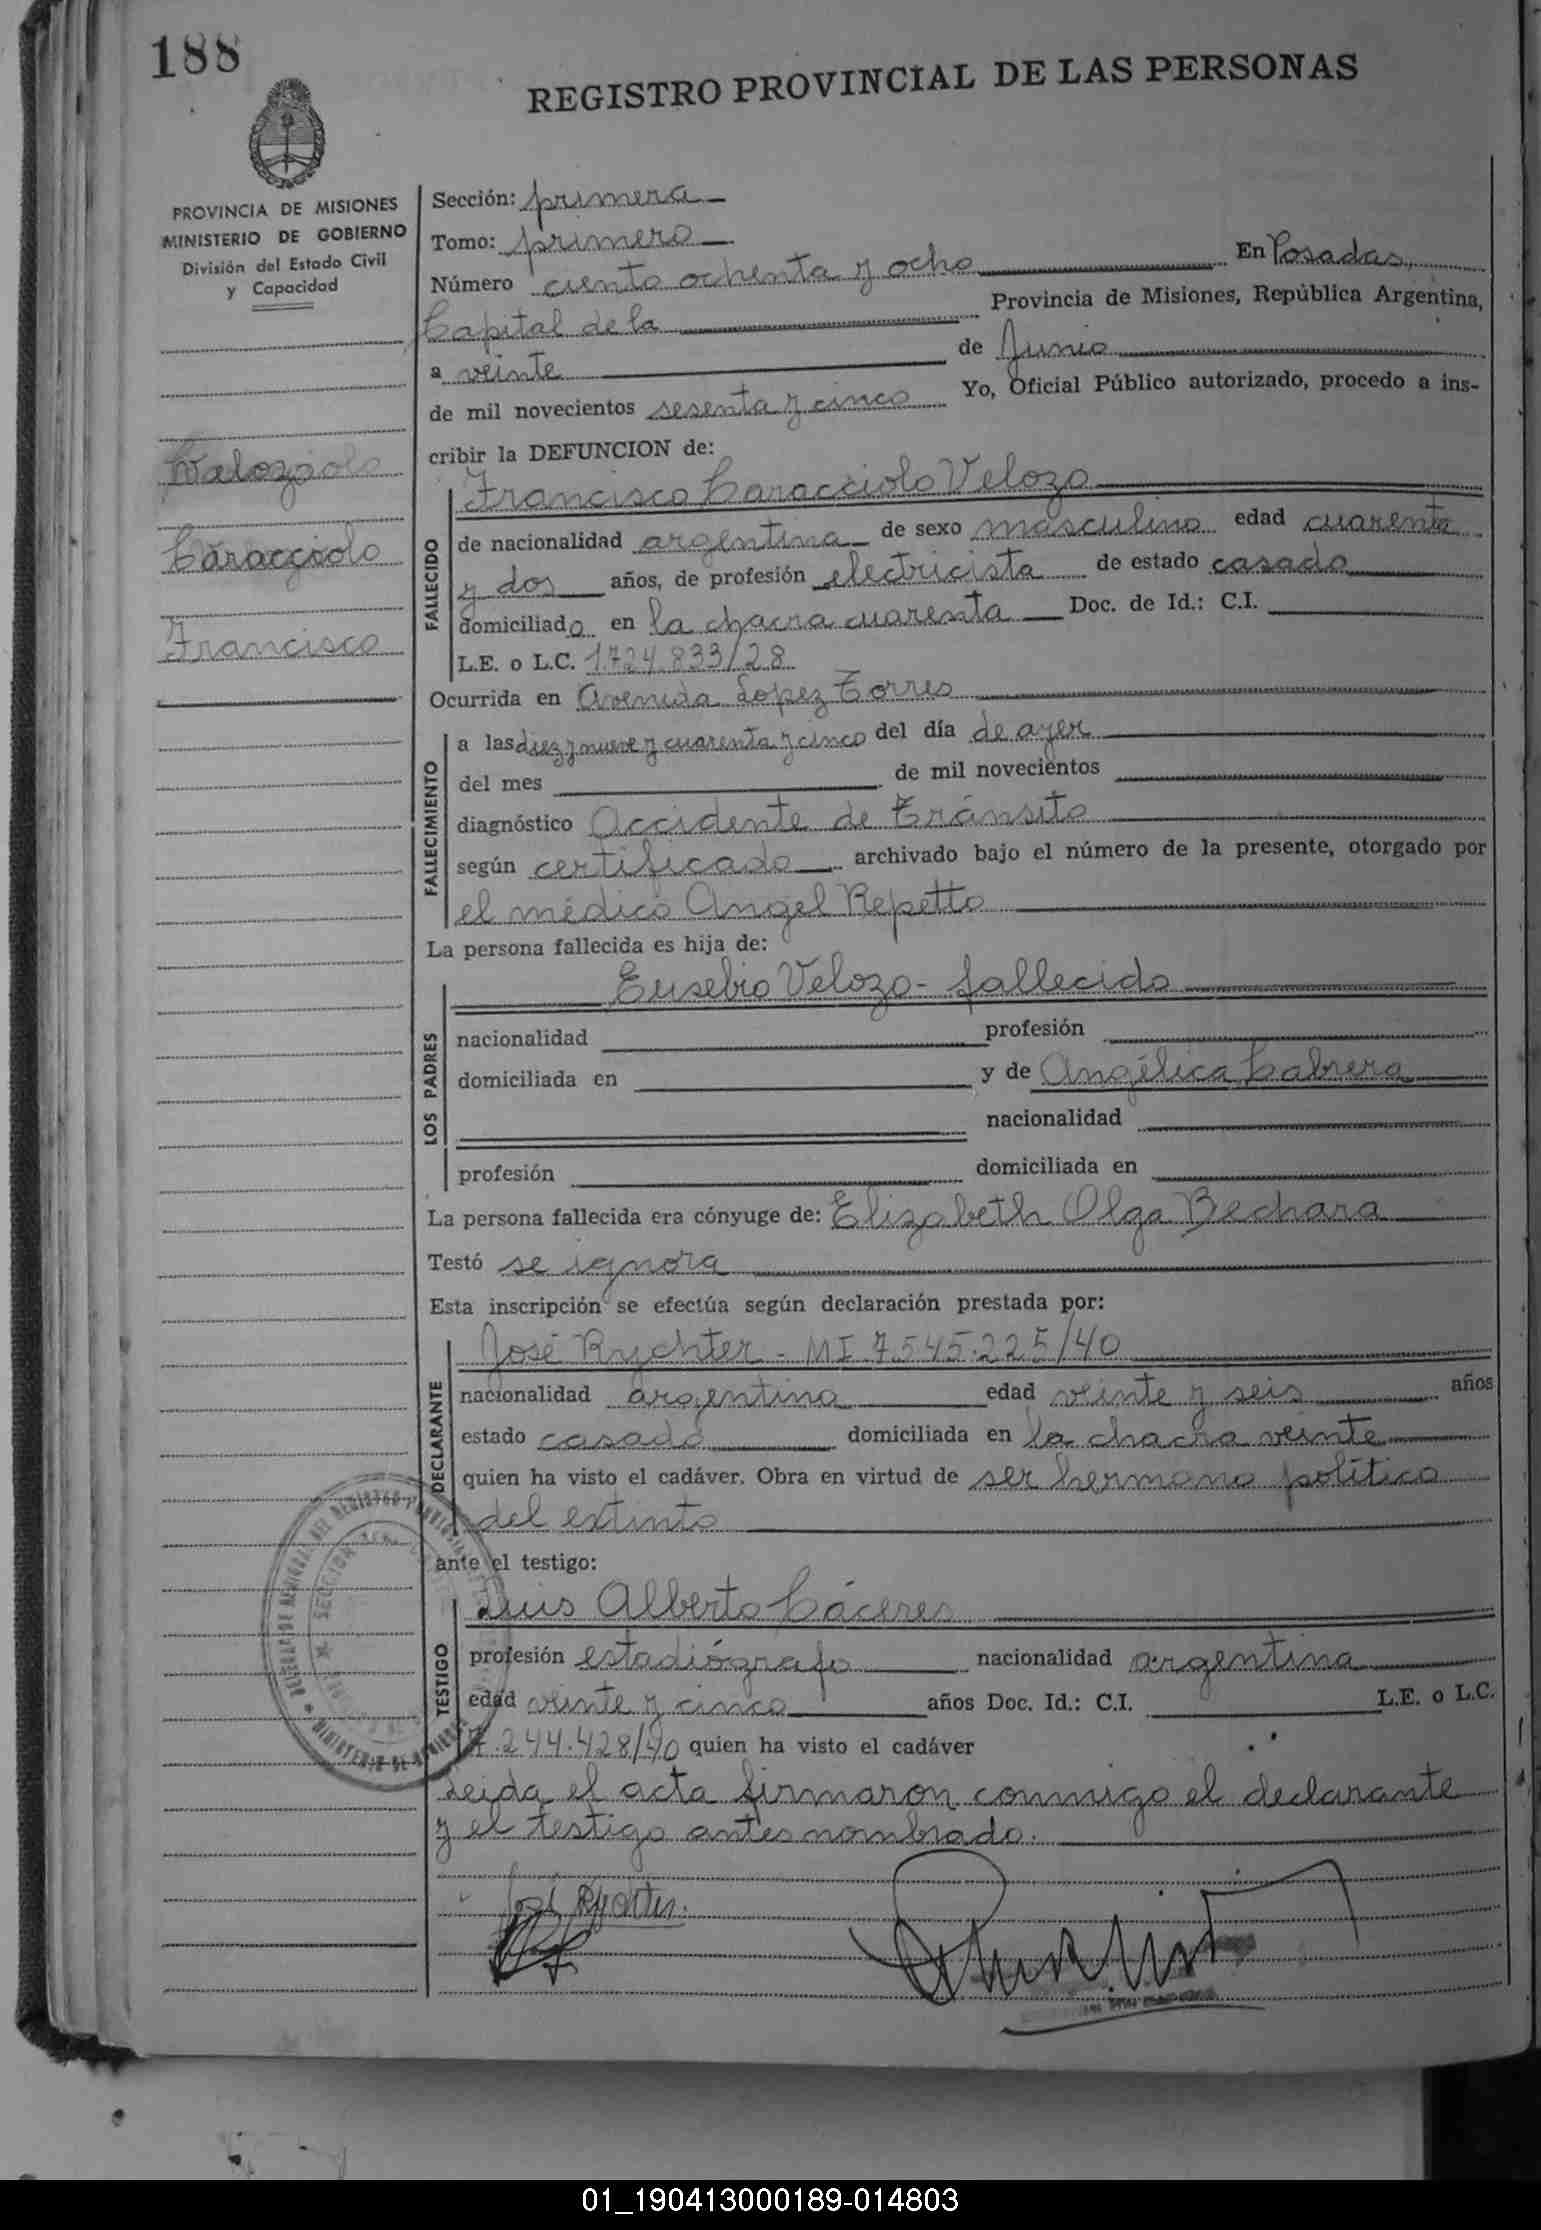 188
REGISTRO PROVINCIAL DE LAS PERSONAS
PROVINCIA DE MISIONES
MINISTERIO DE GOBIERNO
División del Estado Civil
y Capacidad
Caracciolo
Francisco
Sección: primera
Tomo: primero
Número ciento ochenta y ocho En Posadas,
Capital de la Provincia de Misiones, República Argentina,
a veinte de Junio
de mil novecientos sesenta y cinco Yo, Oficial Público autorizado, procedo a ins-
cribir la DEFUNCION de:
FALLECIDO
Francisco Caracciolo Velozo
de nacionalidad argentina de sexo masculino edad cuarenta
y dos años, de profesión electricista de estado casado
domiciliado en la chacra cuarenta Doc. de Id.: C.I.
L.E. o L.C. 1.724.833/28
Ocurrida en Avenida Lopez Torres
FALLECIMIENTO
a las diez y nueve y cuarenta y cinco del día de ayer
del mes de mil novecientos
diagnóstico Accidente de Tránsito
según certificado archivado bajo el número de la presente, otorgado por
el médico Angel Repetto
La persona fallecida es hija de:
LOS PADRES
Eusebio Velozo - fallecido
nacionalidad profesión
domiciliada en y de Angélica Cabrera
nacionalidad
profesión domiciliada en
La persona fallecida era cónyuge de: Elizabeth Olga Bechara
Testó se ignora
Esta inscripción se efectúa según declaración prestada por:
DECLARANTE
José Rychter - MI 7.545.225/40
nacionalidad argentina edad veinte y seis años
estado casado domiciliada en la chacra veinte
quien ha visto el cadáver. Obra en virtud de ser hermano político
del extinto
ante el testigo:
TESTIGO
Luis Alberto Cáceres
profesión estadiógrafo nacionalidad argentina
edad veinte y cinco años Doc. Id.: C.I. L.E. o L.C.
7.244.428/40 quien ha visto el cadáver
Leida el acta firmaron conmigo el declarante
y el testigo antes nombrado.
José Rychter.
01_190413000189-014803